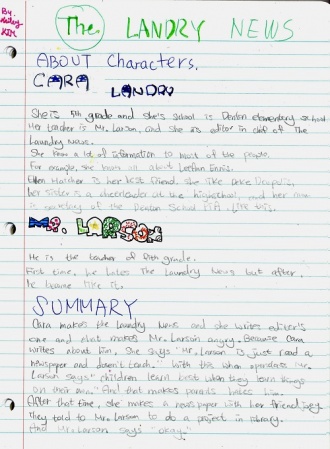 By.
KIM
The LANDRY NEWS
ABOUT Characters.
CARA
LANDRY
She is 5th grade and she's school is Denton elementary school
Her teacher is Mr. Larson, and she is editor in chief of The
Laundry News.
She know a lot of information to most of the people.
For example, she know all about LeeAnn Ennis.
Ellen Hatcher is her best friend. She like Deke Deopolis,
her sister is a cheerleader at the highschool, and her mom
is secretary of the Denton School PTA. Like this.
Mr. LARSON
He is the teacher of 5th grade.
First time, he hates The Laundry News but after,
he became like it.
SUMMARY
Cara makes the Landry News and she writes editor's
one and that makes Mr. Larson angry. Because Cara
writes about him. She says "Mr. Larson is just read a
newspaper and doesn't teach." With this when operates Mr.
Larson says "children learn best when they learn things
on their own." And that makes parents hates him.
After that time, she makes a newspaper with her friend joey
They told to Mr. Larson to do a project in library.
And Mr. Larson says "okay."